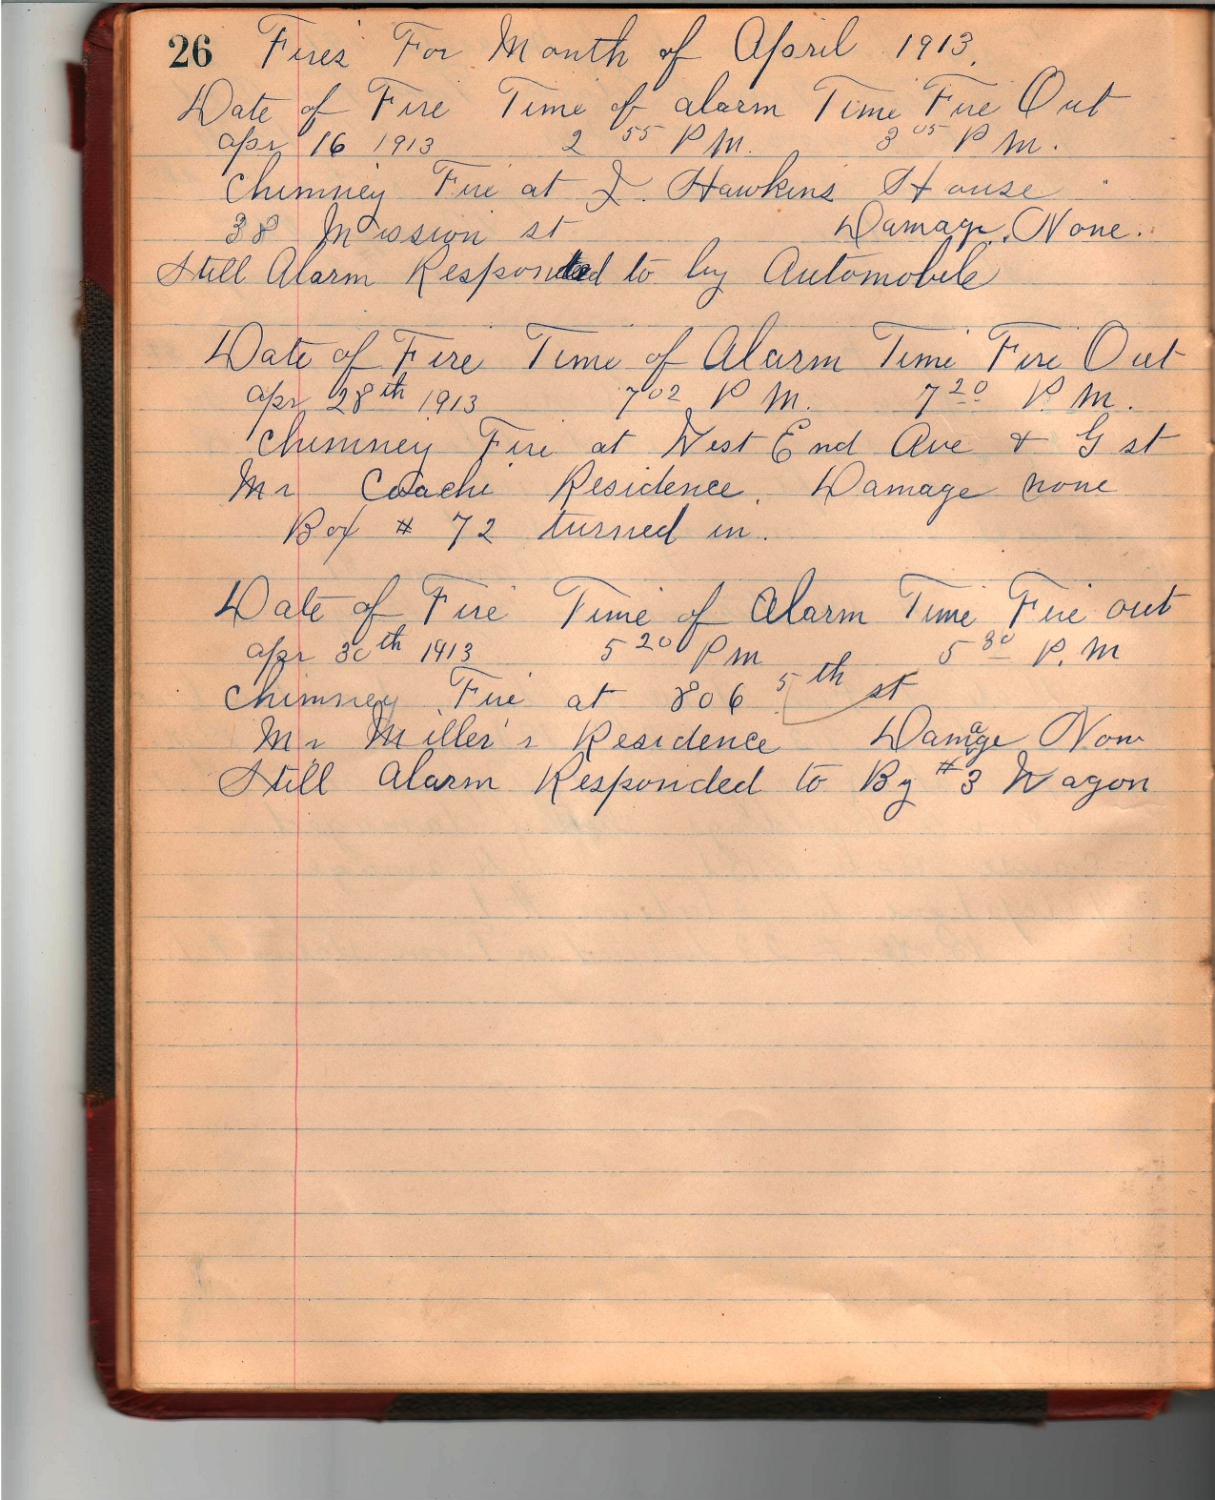 26 Fires For Month of April 1913.
Date of Fire Time of alarm Time Fire Out
apr 16 1913 2 55 P M. 3 05 P M.
Chimney Fire at J. Hawkins House
38 Mission st Damage. None.
Still Alarm Responded to by Automobile
Date of Fire Time of Alarm Time Fire Out
apr 28th 1913 7 02 P M. 7 20 P. M.
Chimney Fire at West End Ave & G st
Mr Residence. Damage none
Box # 72 turned in.
Date of Fire Time of Alarm Time Fire out
apr 30th 1913 5 20 P m 5 30 P. M
Chimney Fire at 806 5th st
Mr Miller's Residence Damage Non
Still Alarm Responded to By #3 Wagon